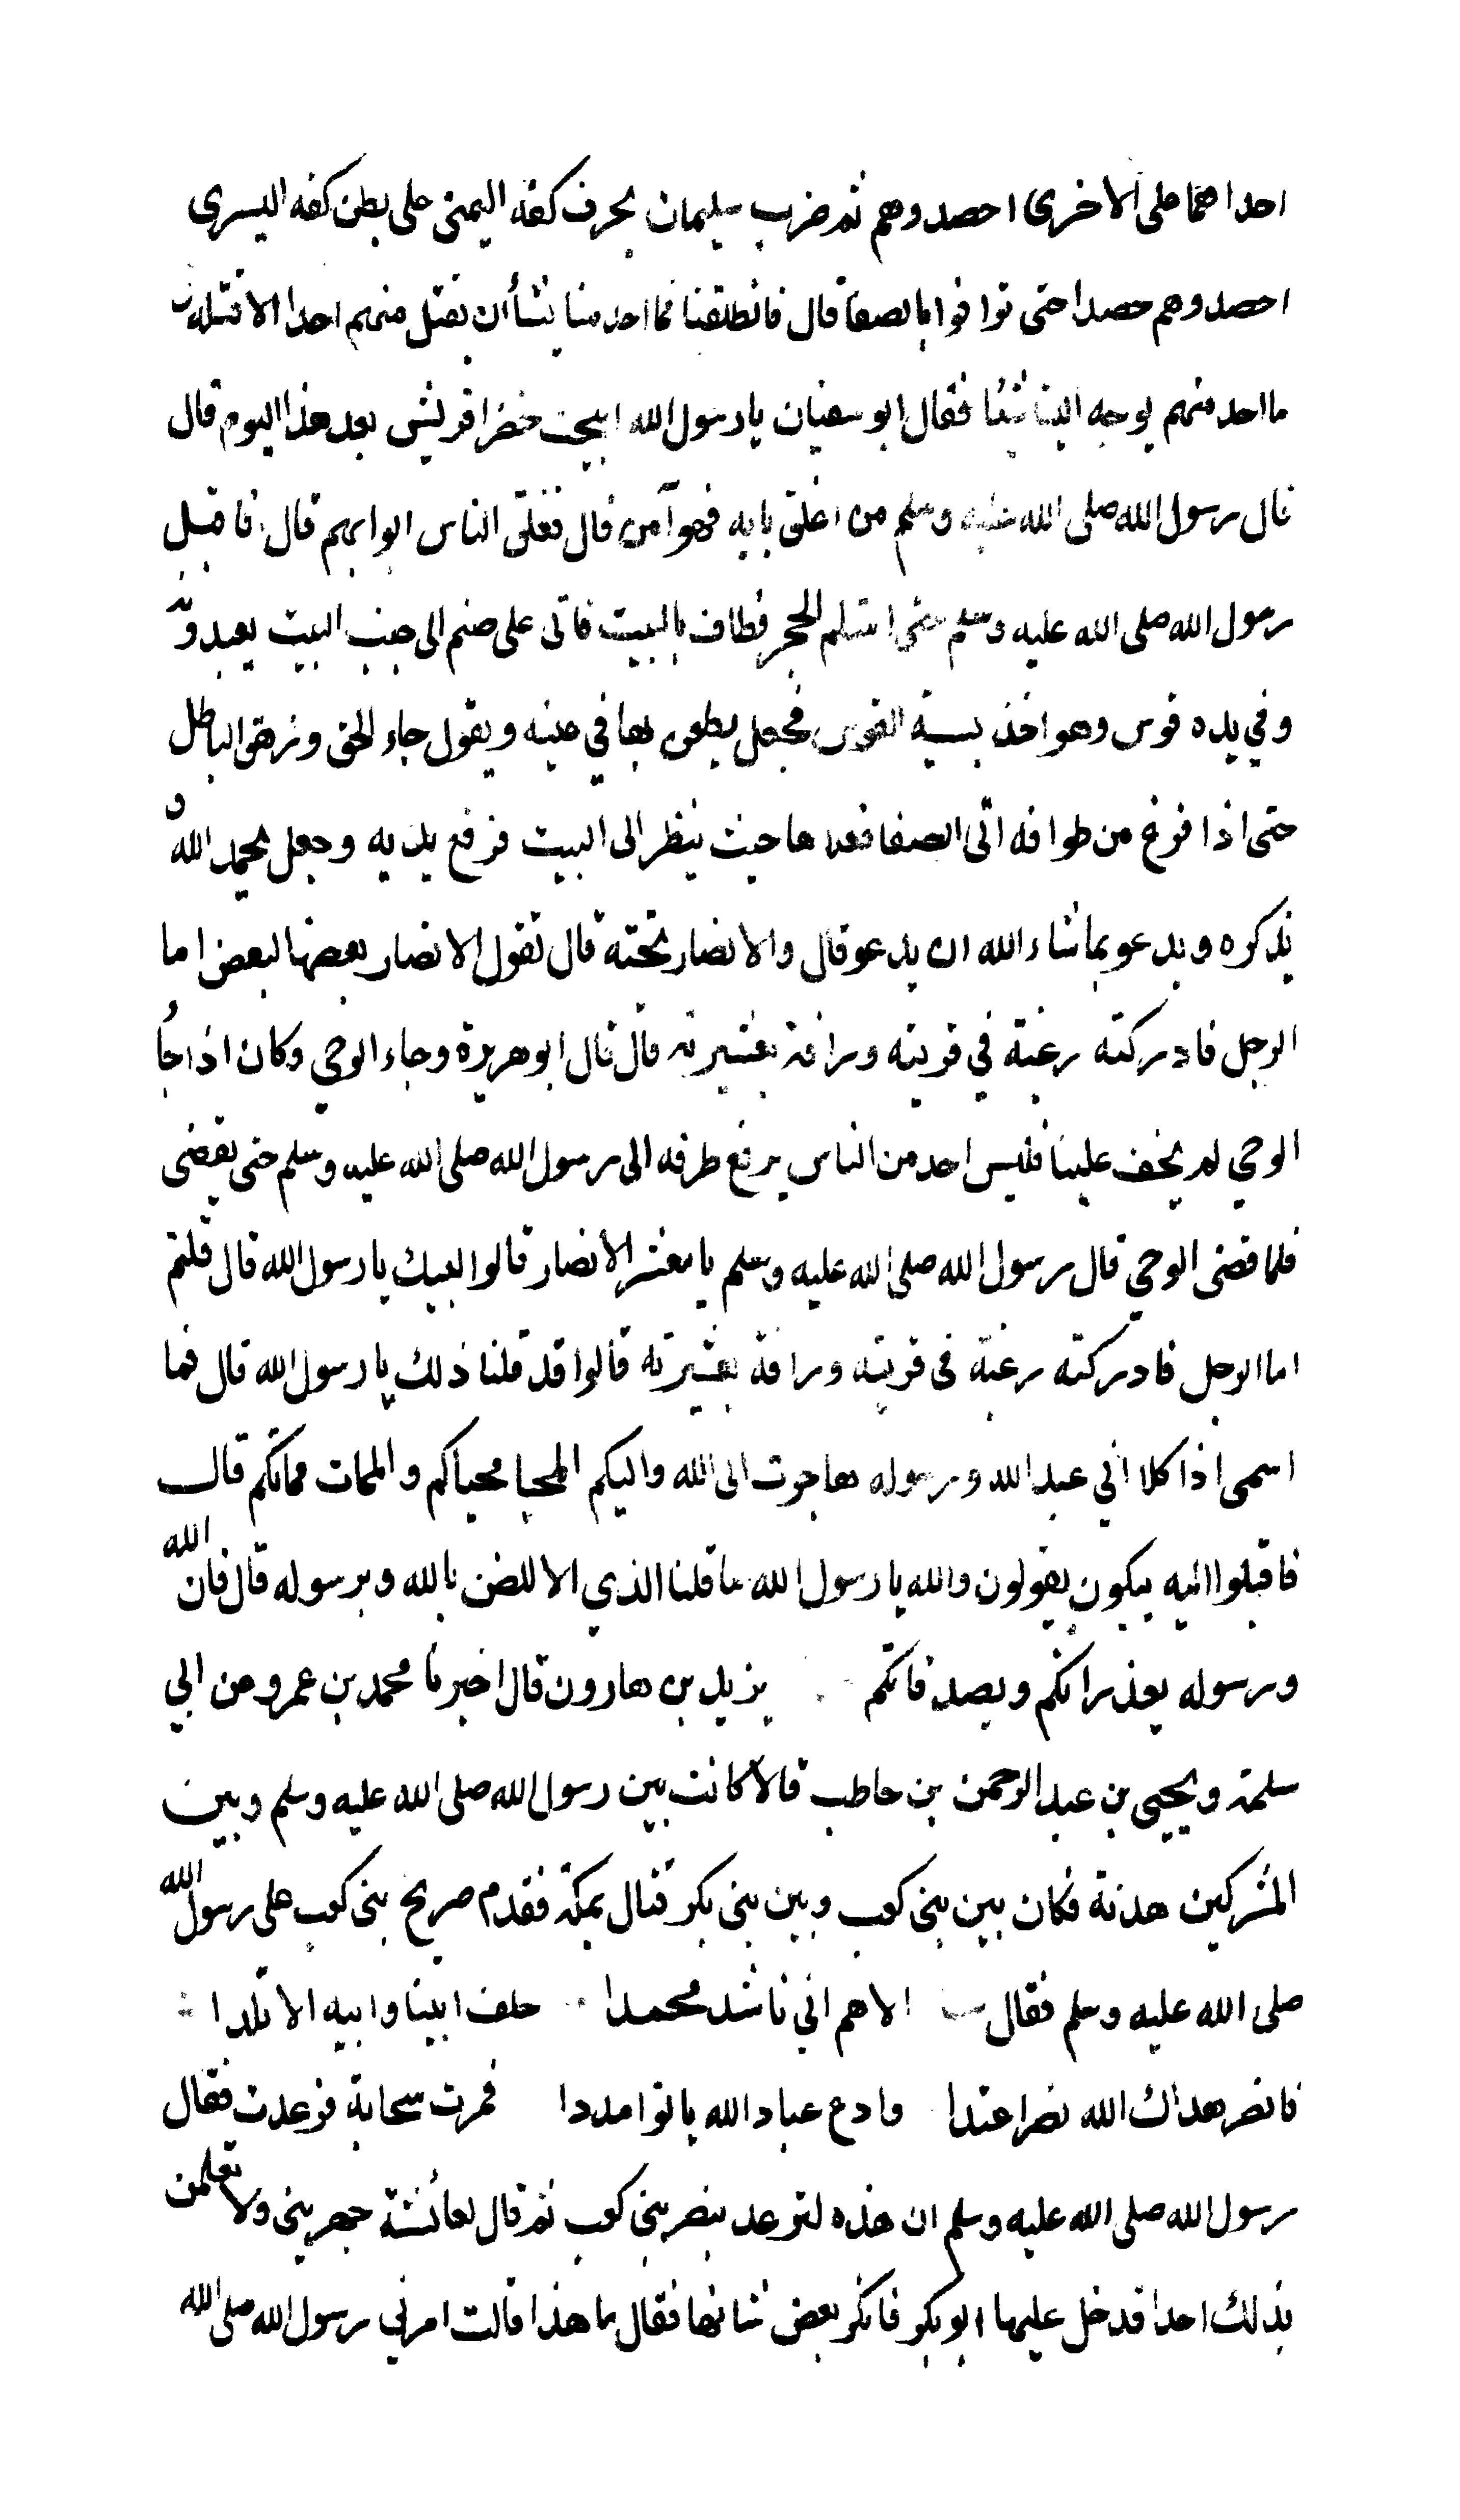 احداهما على الاخرى احصدوهم ثم ضرب سليمان بحرف كفه اليمنى على بطن كفه اليسرى
احصدوهم حصدا حتى توافوا بالصفا قال فانطلقنا فما احد منا يشأ ان يقتل منهم احدا الا قتله و
ما احد منهم يوجه الينا شيئا فقال ابو سفيان يا رسول الله ابيحت خضرا قريش بعد هذا اليوم قال
قال رسول الله صلى الله عليه وسلم من اغلق بابه فهو آمن قال فغلق الناس ابوابهم قال فاقبل
رسول الله صلى الله عليه وسلم حتى استلم الحجر فطاف بالبيت فاتى على صنم الى جنب البيت يعبدونه
وفي يده قوس وهو اخذ بسية القوس فجعل يطعن بها في عينه ويقول جاء الحق وزهق الباطل
حتى اذا فرغ من طوافه اتى الصفا فعلاها حيث ينظر الى البيت فرفع يديه وجعل يحمد الله و
يذكره ويدعو بما شاء الله ان يدعو قال والانصار تحته قال تقول الانصار بعضها لبعض اما
الرجل فادركته رغبة في قريته ورافة بعشيرته قال قال ابو هريرة وجاء الوحي وكان اذا جأ
الوحي لم يخف علينا فليس احد من الناس يرفع طرفه الى رسول الله صلى الله عليه وسلم حتى يقضى
فلما قضى الوحي قال رسول الله صلى الله عليه وسلم يا معشر الانصار قالوا لبيك يا رسول الله قال قلتم
اما الرجل فادركته رغبة في قريته ورافة بعشيرته قالوا قد قلنا ذلك يا رسول الله قال فما
اسمى اذا كلا اني عبد الله ورسوله هاجرت الى الله واليكم المحيا محياكم والممات مماتكم قال
فاقبلوا اليه يبكون يقولون والله يا رسول الله ما قلنا الذي الا للضن بالله وبرسوله قال فان الله
ورسوله يعذرانكم ويصدقانكم يزيد بن هارون قال اخبرنا محمد بن عمرو عن ابي
سلمة ويحيى بن عبد الرحمن بن حاطب قالا كانت بين رسول الله صلى الله عليه وسلم وبين
المشركين هدنة فكان بين بني كعب وبين بني بكر قتال بمكة فقدم صريخ بني كعب على رسول الله
صلى الله عليه وسلم فقال الاهم اني ناشد محمدا حلف ابينا وابيه الاتلدا
فانصر هداك الله نصرا عتدا وادع عباد الله ياتوا مددا فمرت سحابة فرعدت فقال
رسول الله صلى الله عليه وسلم ان هذه لترعد بنصر بني كعب ثم قال لعائشة جهزيني ولا تعلمن
بذلك احدا فدخل عليها ابو بكر فانكر بعض شانها فقال ما هذا قالت امرني رسول الله صلى الله